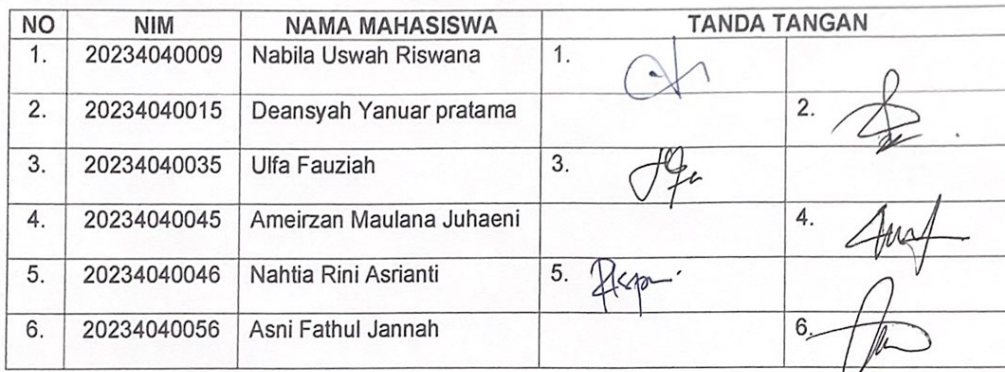 NO NIM NAMA MAHASISWA TANDA TANGAN
1. 20234040009 Nabila Uswah Riswana 1.
2. 20234040015 Deansyah Yanuar pratama 2.
3. 20234040035 Ulfa Fauziah 3.
4. 20234040045 Ameirzan Maulana Juhaeni 4.
5. 20234040046 Nahtia Rini Asrianti 5.
6. 20234040056 Asni Fathul Jannah 6.